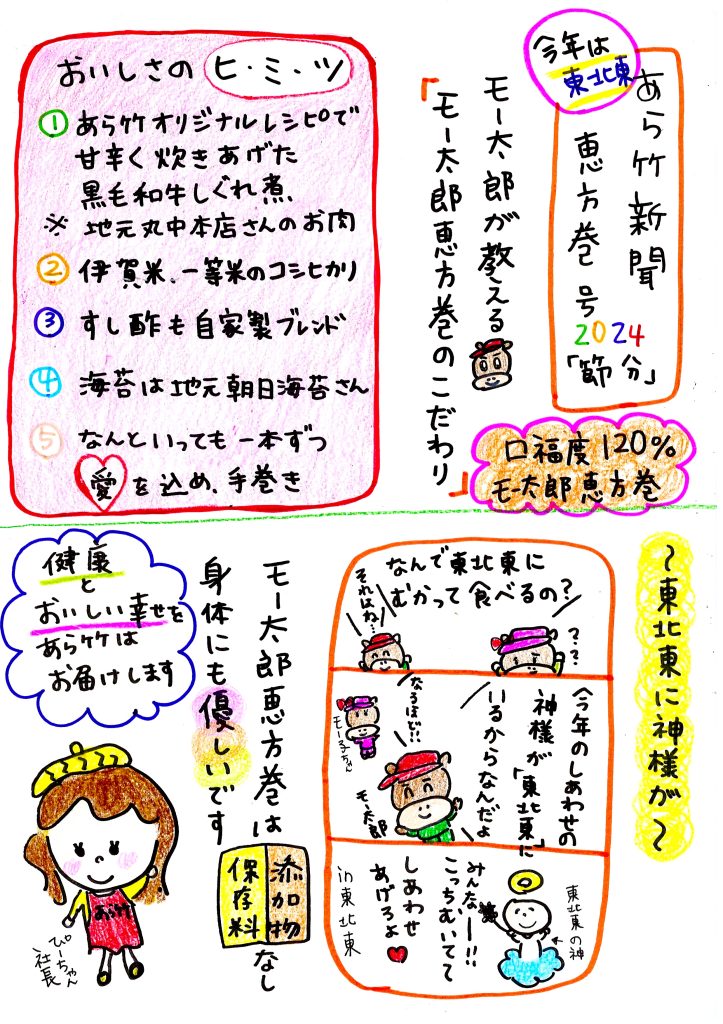 今年は
東北東
あら竹新聞
恵方巻号
2024
「節分」
モー太郎が教える
「モー太郎恵方巻のこだわり」
口福度120%
モー太郎恵方巻
おいしさの ヒ・ミ・ツ
① あら竹オリジナルレシピで
甘辛く炊きあげた
黒毛和牛しぐれ煮
※ 地元丸中本店さんのお肉
② 伊賀米、一等米のコシヒカリ
③ すし酢も自家製ブレンド
④ 海苔は地元朝日海苔さん
⑤ なんといっても一本ずつ
愛を込め、手巻き
〜東北東に神様が〜
なんで東北東に
むかって食べるの?
???
それはね…
今年のしあわせの
神様が「東北東」に
いるからなんだよ
なるほど!!
モー子ちゃん
モー太郎
東北東の神
みんなー!!
こっちむいてて
しあわせ
あげるよ
in東北東
モー太郎恵方巻は
添加物
保存料
なし
身体にも優しいです
健康
と
おいしい幸せを
あら竹は
お届けします
あら竹
ぴーちゃん
社長